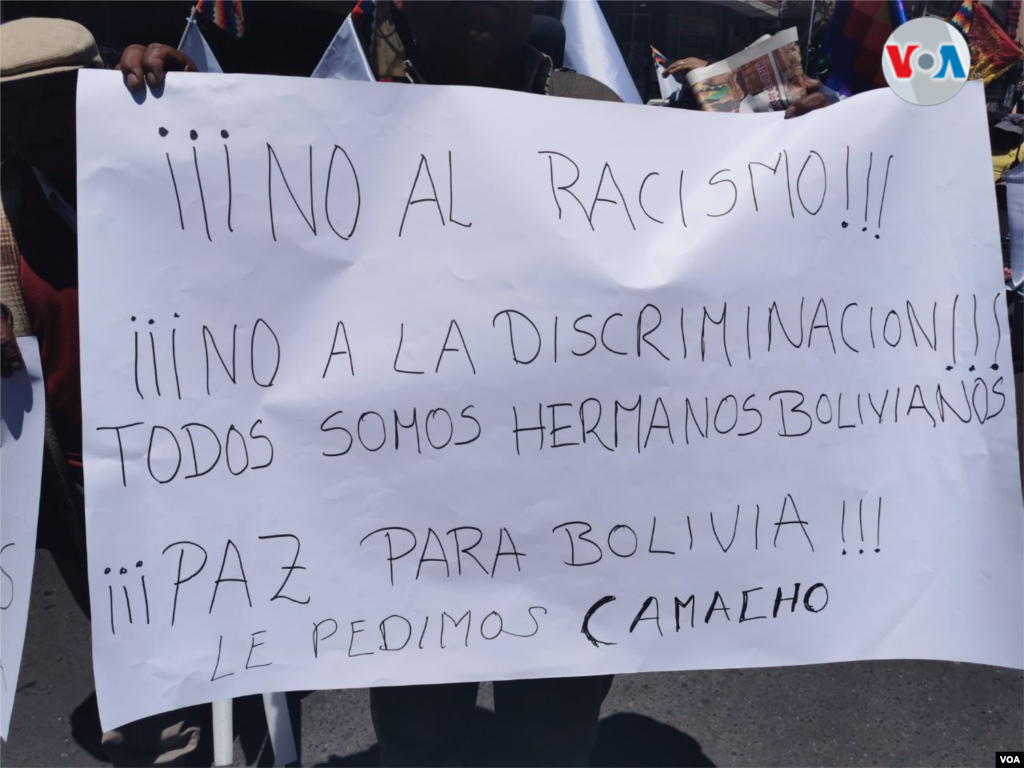 VOA
¡¡¡NO AL RACISMO!!!
¡¡¡NO A LA DISCRIMINACION!!!
TODOS SOMOS HERMANOS BOLIVIANOS
¡¡¡PAZ PARA BOLIVIA!!!
LE PEDIMOS CAMACHO
VOA